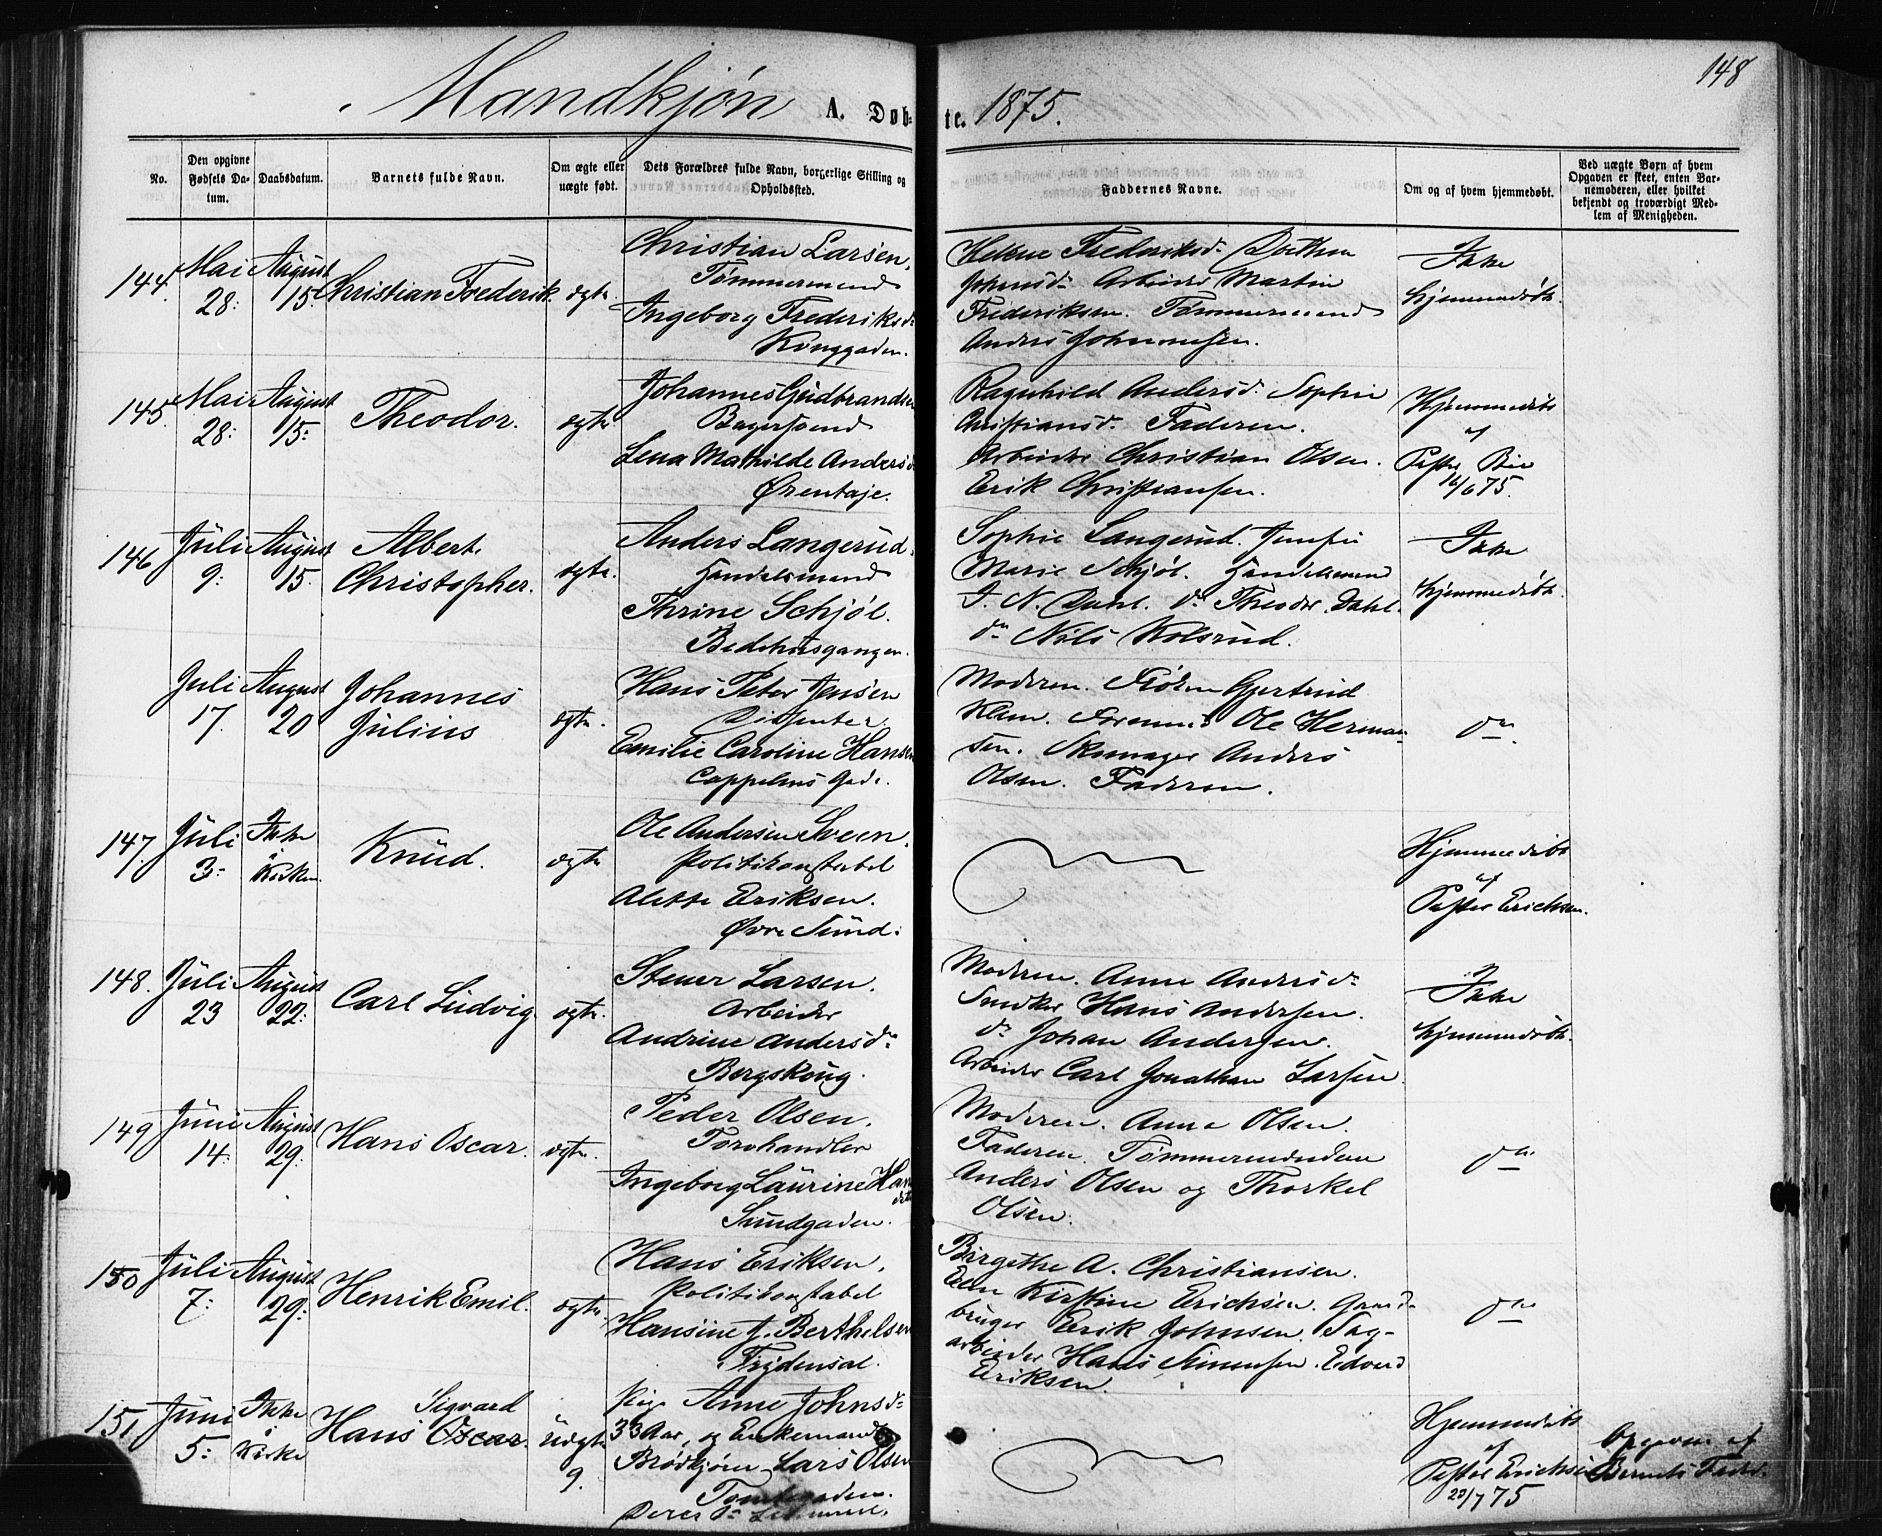 148
Mandkjøn A. Døbte. 1875.
No.
Den opgivne Fødsels Datum.
Daabsdatum.
Barnets fulde Navn.
Om ægte eller uægte født.
Dets Forældres fulde Navn, borgerlige Stilling og Opholdssted.
Faddernes Navne.
Om og af hvem hjemmedøbt.
Ved uægte Børn af hvem Opgaven er skeet, enten Barnemoderen, eller hvilket bekjendt og troværdigt Medlem af Menigheden.
144. Mai 28: August 15. Christian Frederik. ægte.
Christian Larsen.
Tømmermand
Ingeborg Frederiksd:
Konggaden.
Helene Frederiksd: Dorthea
Johnsd: Arbeider Martin
Frederiksen. Tømmermand
Anders Johannesen.
Ikke
hjemmedøbt.
145. Mai 28: August 15: Theodor. ægte
Johannes Gudbrandsen
Bagersvend
Lena Mathilde Andersd:
Ørentøje.
Ragnhild Andersd. Sophie
Christiansd. Faderen.
Arbeider Christian Olsen.
Erik Christiansen.
Hjemmedøbt
af
Pastor
/6 75.
146 Juli 9: August 15. Albert Christopher. ægte.
Anders Langerud.
Handelsmand
Thrine Schjøl.
Bedehusgangen.
Sophie Langerud. Jomfru
Marie Schjøl. Handelsmand
J. N. Dahl. do Theodor Dahl.
do Nils Kolsrud.
Ikke
hjemmedøbt.
Juli 17. August 20 Johannes Julius ægte.
Hans Peter Jensen
Dissenter.
Emilie Caroline Hansen
Cappelens Gade.
Moderen. Frøken Gjertrud
Klem. Ole Herman-
sen. Skomager Anders
Olsen. Faderen.
do.
147. Juli 3: Ikke i Kirken. Knud. ægte
Ole Andersen Sveen.
Politikonstabel
Alette Eriksen.
Øvre Sund.
Hjemmedøbt
af
Pastor Erichsen.
148. Juli 23 August 22: Carl Ludvig ægte.
Stener Larsen.
Arbeider
Andrine Andersd:
Bergskoug.
Moderen. Anne Andersd:
Snedker Hans Andersen.
do Johan Andersen.
Arbeider Carl Jonathan Larsen.
Ikke
hjemmedøbt.
149 Juni 14: August 29: Hans Oscar. ægte.
Peder Olsen.
Torvhandler
Ingeborg Laurine Hans
datter
Sundgaden.
Moderen. Anna Olsen.
Faderen. Tømmermændene
Anders Olsen og Thorkel
Olsen.
do
150 Juli 7: August 29: Henrik Emil. ægte.
Hans Eriksen.
Politikonstabel
Hansine J. Berthelsen
Frydensal.
Birgethe A. Christiansen.
Elen Kirstine Erichsen. Gaard-
bruger Erik Johnsen. Sag-
arbeider Hans Simensen. Edvard
Eriksen.
do
151 Juni 5: Ikke i Kirke Hans Sigvard Oscar. Uægte 9.
Pige Anne Johnsd:
33 Aar, og Enkemand
Brødkjører Lars Olsen
Deres
Hjemmedøbt
af
Pastor Erichsen
23/7 75
Opgiven af
Barnets Fader.